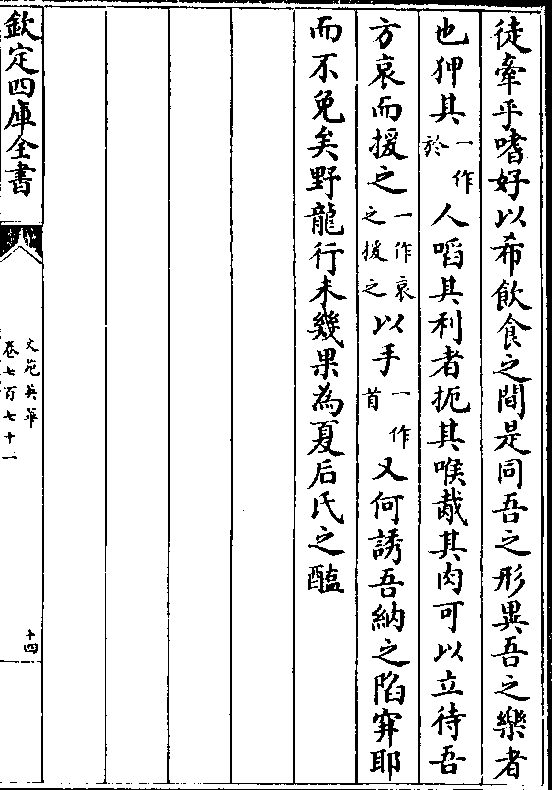 徒牽乎嗜好以希飲食之間是同吾之形異吾之樂者
也狎其一作於人啗其利者扼其喉胾其肉可以立待吾
方哀而援之一作哀之援之以手一作首又何誘吾納之陷穽耶
而不免矣野龍行未幾果為夏后氏之醢
欽定四庫全書
文苑英華
卷七百七十一
十四